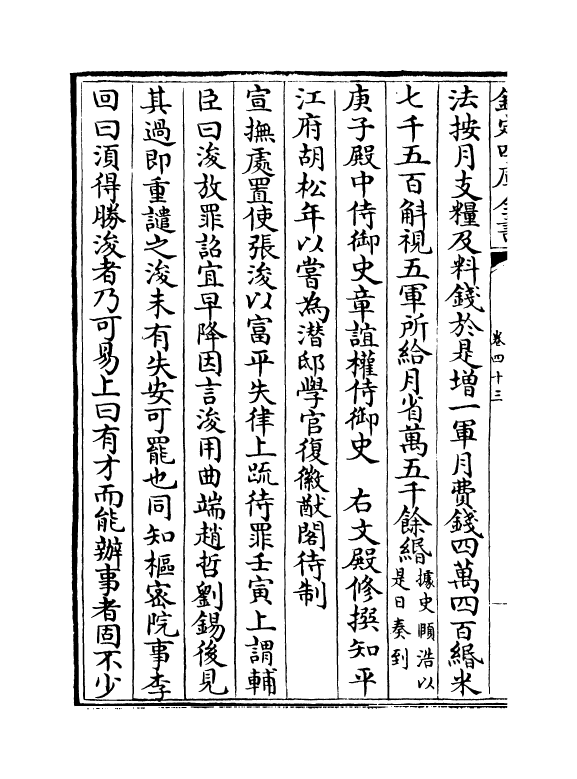 欽定四庫全書
卷四十三
法按月支糧及料錢於是增一軍月費錢四萬四百緡米
七千五百斛視五軍所給月省萬五千餘緡據史頤浩以是日奏到
庚子殿中侍御史章誼權侍御史　右文殿修撰知平
江府胡松年以嘗為潛邸學官復徽猷閣待制
宣撫處置使張浚以富平失律上疏待罪壬寅上謂輔
臣曰浚放罪詔宜早降因言浚用曲端趙哲劉錫後見
其過即重譴之浚未有失安可罷也同知樞密院事李
回曰須得勝浚者乃可易上曰有才而能辦事者固不少